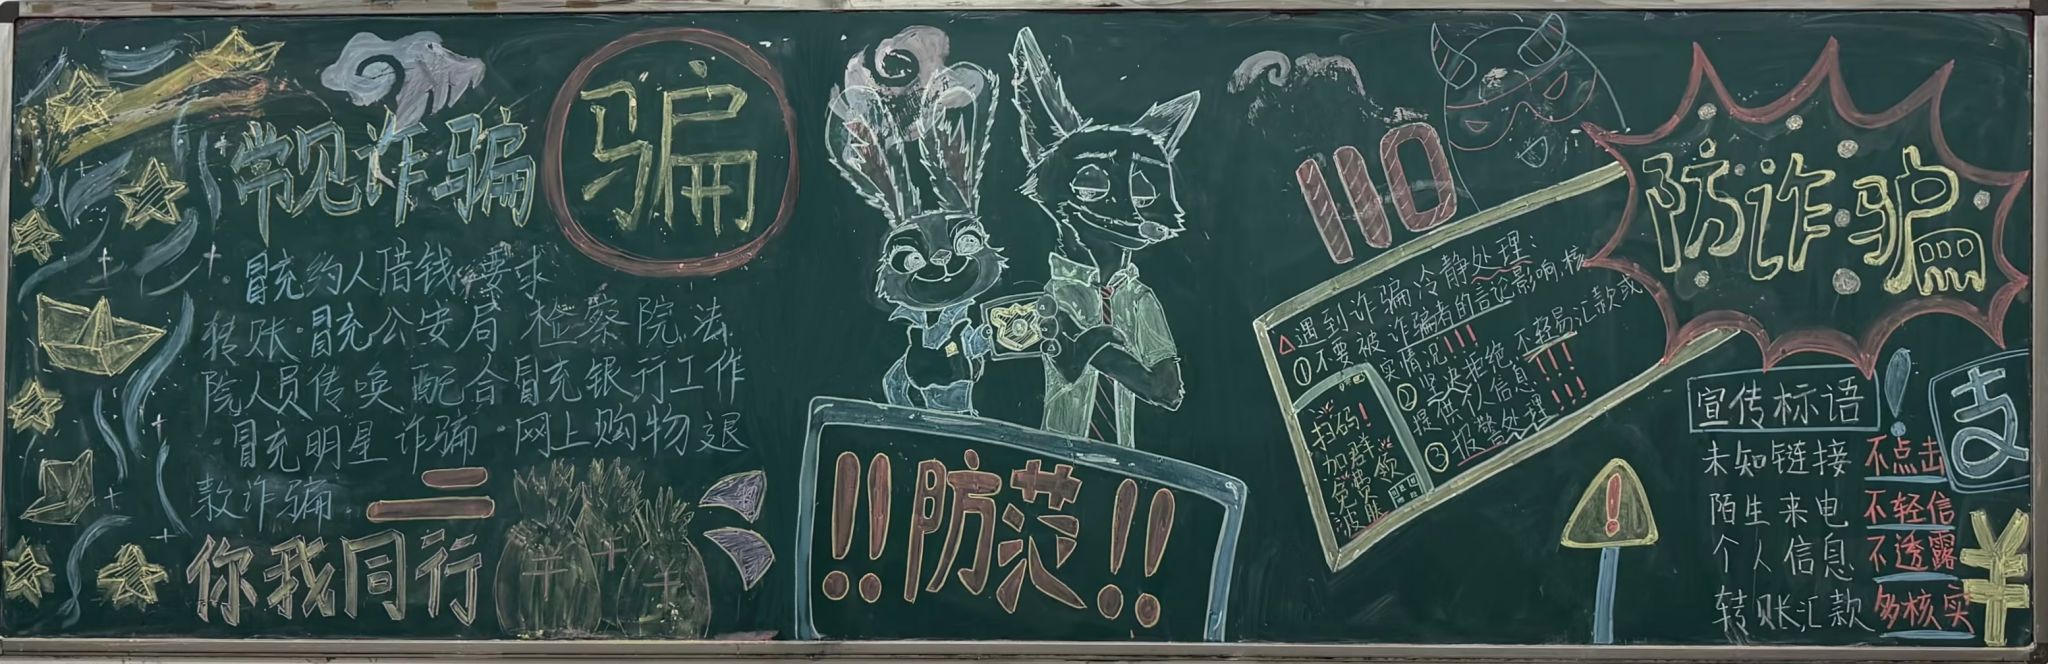 常见诈骗
骗
冒充约人借钱·要求
转账·冒充公安局、检察院、法
院人员传唤配合冒充银行工作
·冒充明星诈骗·网上购物退
款诈骗
二
你我同行
!!防范!!
110
△遇到诈骗冷静处理：
①不要被诈骗者的言论影响，核
实情况!!!
②坚决拒绝不轻易汇款或
提供个人信息!!!
③报警处理!!!
扫码!
加群领
免费
皮肤
防诈骗
宣传标语!
支
未知链接 不点击
陌生来电 不轻信
个人信息 不透露
转账汇款 多核实
¥